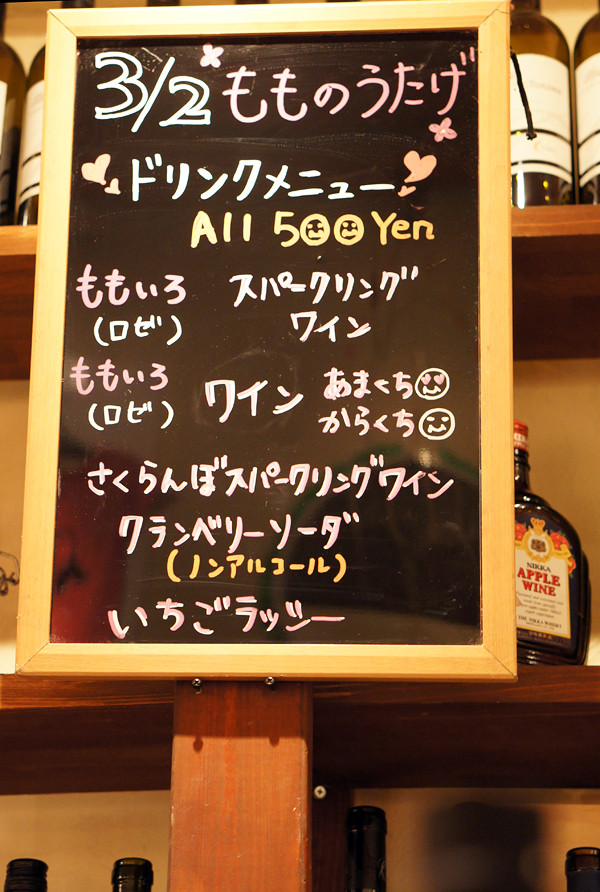 3/2 もものうたげ
ドリンクメニュー
All 500 Yen
ももいろ スパークリング
(ロゼ) ワイン
ももいろ ワイン あまくち
(ロゼ) からくち
さくらんぼスパークリングワイン
クランベリーソーダ
(ノンアルコール)
いちごラッシー
NIKKA
APPLE
WINE